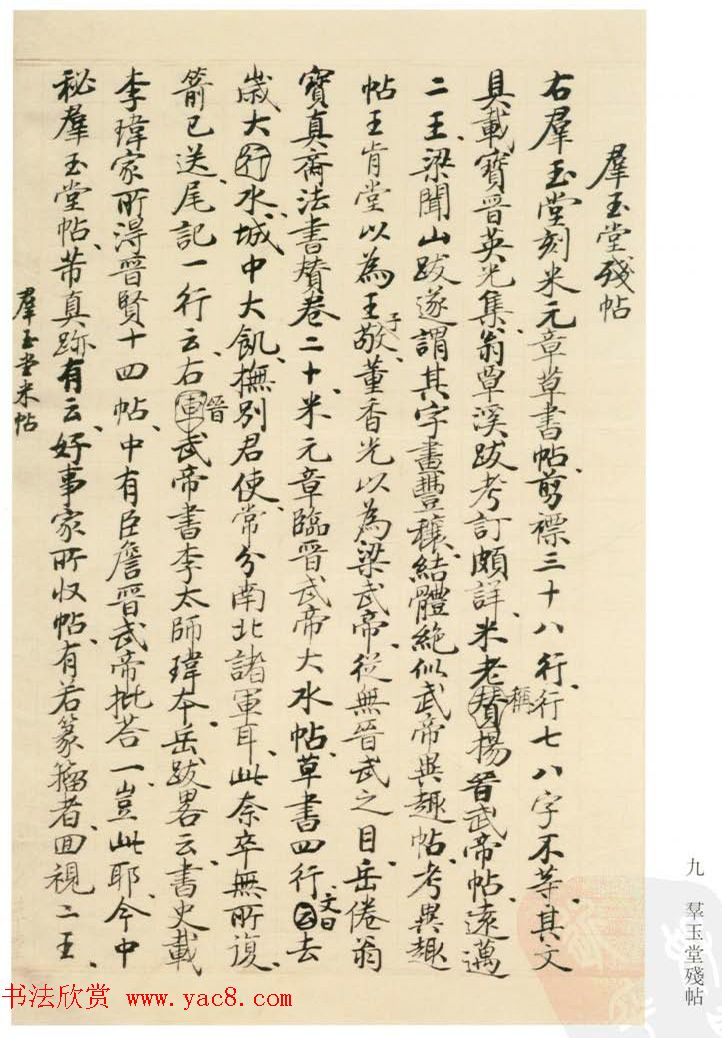 羣玉堂殘帖
右羣玉堂刻米元章草書帖、剪褾三十八行、行七八字不等、其文
具載寶晉英光集、翁覃溪跋考訂頗詳、米老稱揚晉武帝帖、遠邁
二王、梁聞山跋遂謂其字畫豐穠、結體絶似武帝異趣帖、考異趣
帖王肯堂以為王子敬、董香光以為梁武帝、從無晉武之目、岳倦翁
寶真齋法書贊卷二十、米元章臨晉武帝大水帖、草書四行、文曰去
歲大水、城中大飢、撫別君使、常分南北諸軍耳、此奈卒無所復、
箭已送、尾記一行云、右晉武帝書李太師瑋本、岳跋畧云、書史載
李瑋家所得晉賢十四帖、中有臣詹晉武帝批荅一、豈此耶、今中
秘羣玉堂帖、芾真跡有云、好事家所收帖、有若篆籀者、回視二王、
羣玉堂米帖
九 羣玉堂殘帖
书法欣赏 www.yac8.com